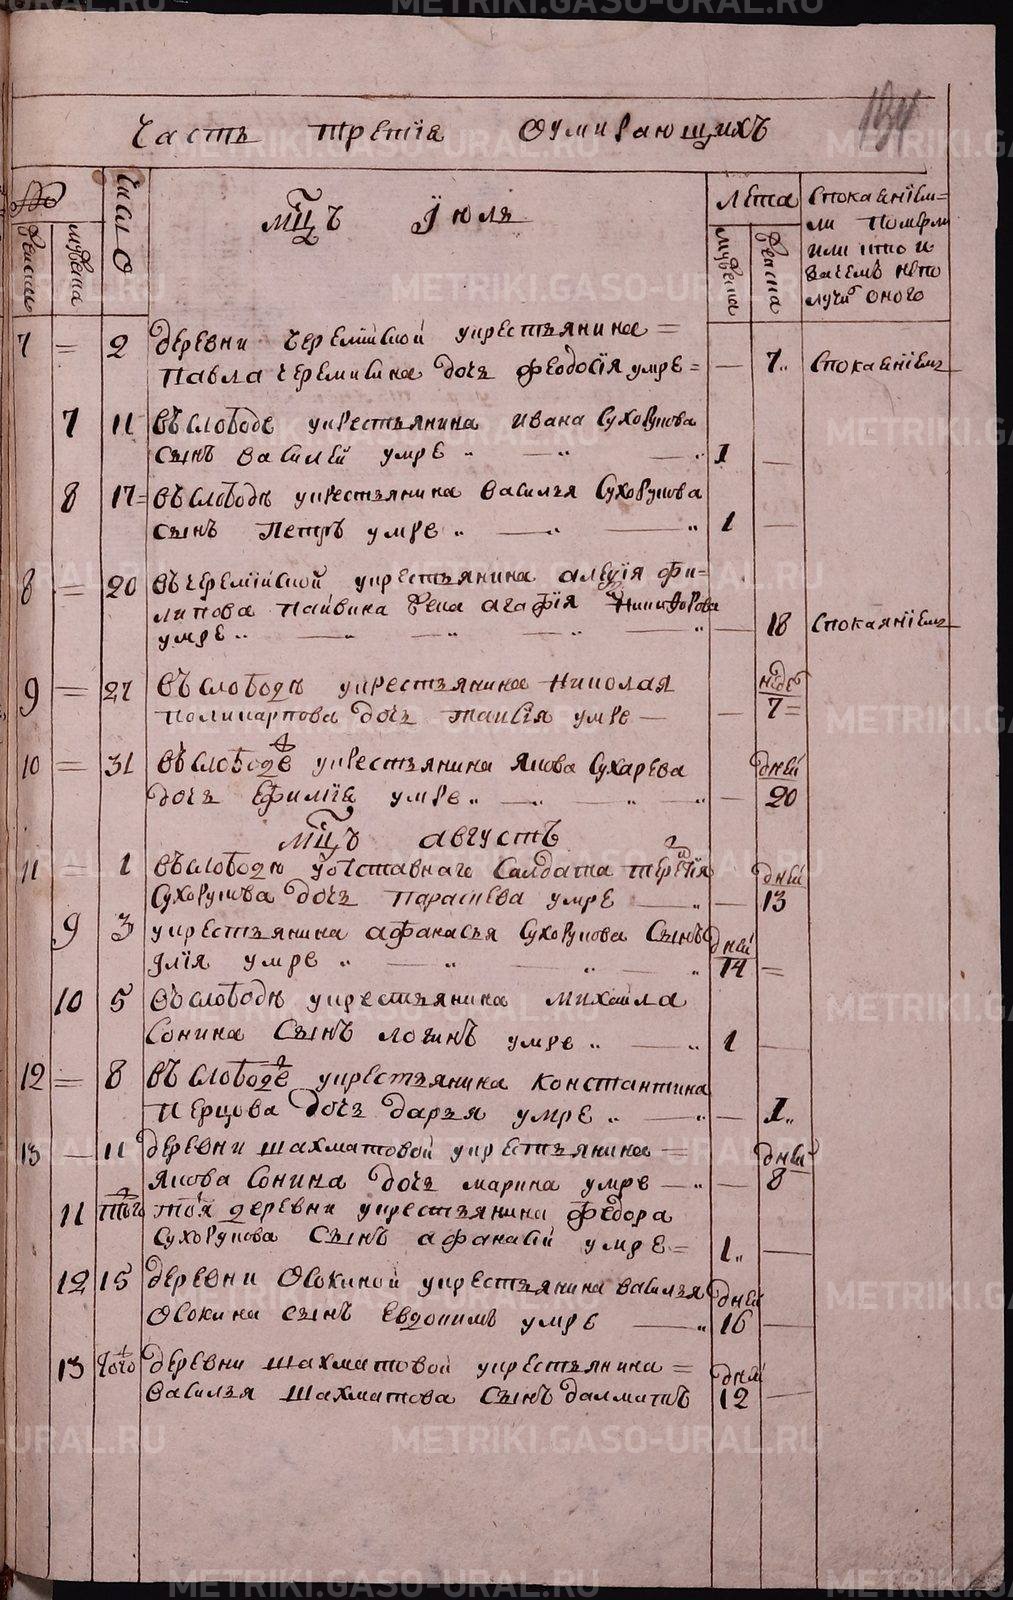 METRIKI.GASO-URAL.RU
Часть третїя оумирающихъ
№
женска
мужеска
Число
мцъ Їюля
Лета
мужеска
женска
Спокаенїем=
ли померли
или кто и
зачемъ непо
лучи оного
7 = 2 деревни черемїйской укрестьянина =
Павла черемисина дочь феодосїя умре = — 7 „ Спокаенїемъ
7 11 въслободе укрестьянина ивана Сухорукова
сынъ василей умре „ — „ — „ 1 —
8 17 = въслободѣ укрестьянина василья Сухорукова
сынъ Петръ умре „ — „ — „ 1 —
8 = 20 въчеремїйской укрестьянина алеѯїя фи=
липова пайвина жена агафїя никифорова
умре „ — „ — „ — „ — „ — 18 Спокаянїемъ
9 = 27 въслободѣ укрестьянина николая
поликарпова дочь таисїя умре — — недел 7 =
10 = 31 въслободе укрестьянина якова Сухарева
дочь Ефимїя умре „ — „ — „ — дней 20
мцъ августъ
11 = 1 въслободѣ уотставнаго Салдата терентїя
Сухорукова дочь параскева умре — „ — дней 13
9 3 укрестьянина афанасья Сухорукова Сынъ
Їлїя умре „ — „ — „ — „ дней 14 =
10 5 въслободѣ укрестьянина михаила
Сонина Сынъ логинъ умре „ — „ 1 —
12 = 8 въслободе укрестьянина константина
перцова дочь дарья умре „ — „ — 1 „
13 — 11 деревни шахматовой укрестьянина =
якова Сонина дочь марина умре — „ — дней 8
11 того тоя деревни укрестьянина федора
Сухорукова Сынъ афанасїй умре = 1 „ —
12 15 деревни Осокиной укрестьянина василья
Осокина сынъ Евдокимъ умре — „ дней 16 —
13 того деревни шахматовой укрестьянина =
василья шахматова Сынъ далматъ дней 12 —